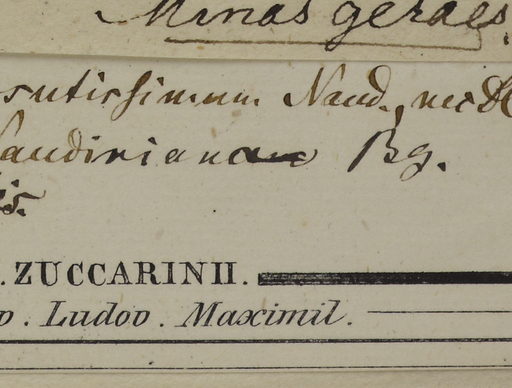 Minas geraes.
sutissimum Naud., nec DC
Naudiniana Bg.
is.
. ZUCCARINII.
o. Ludov. Maximil.